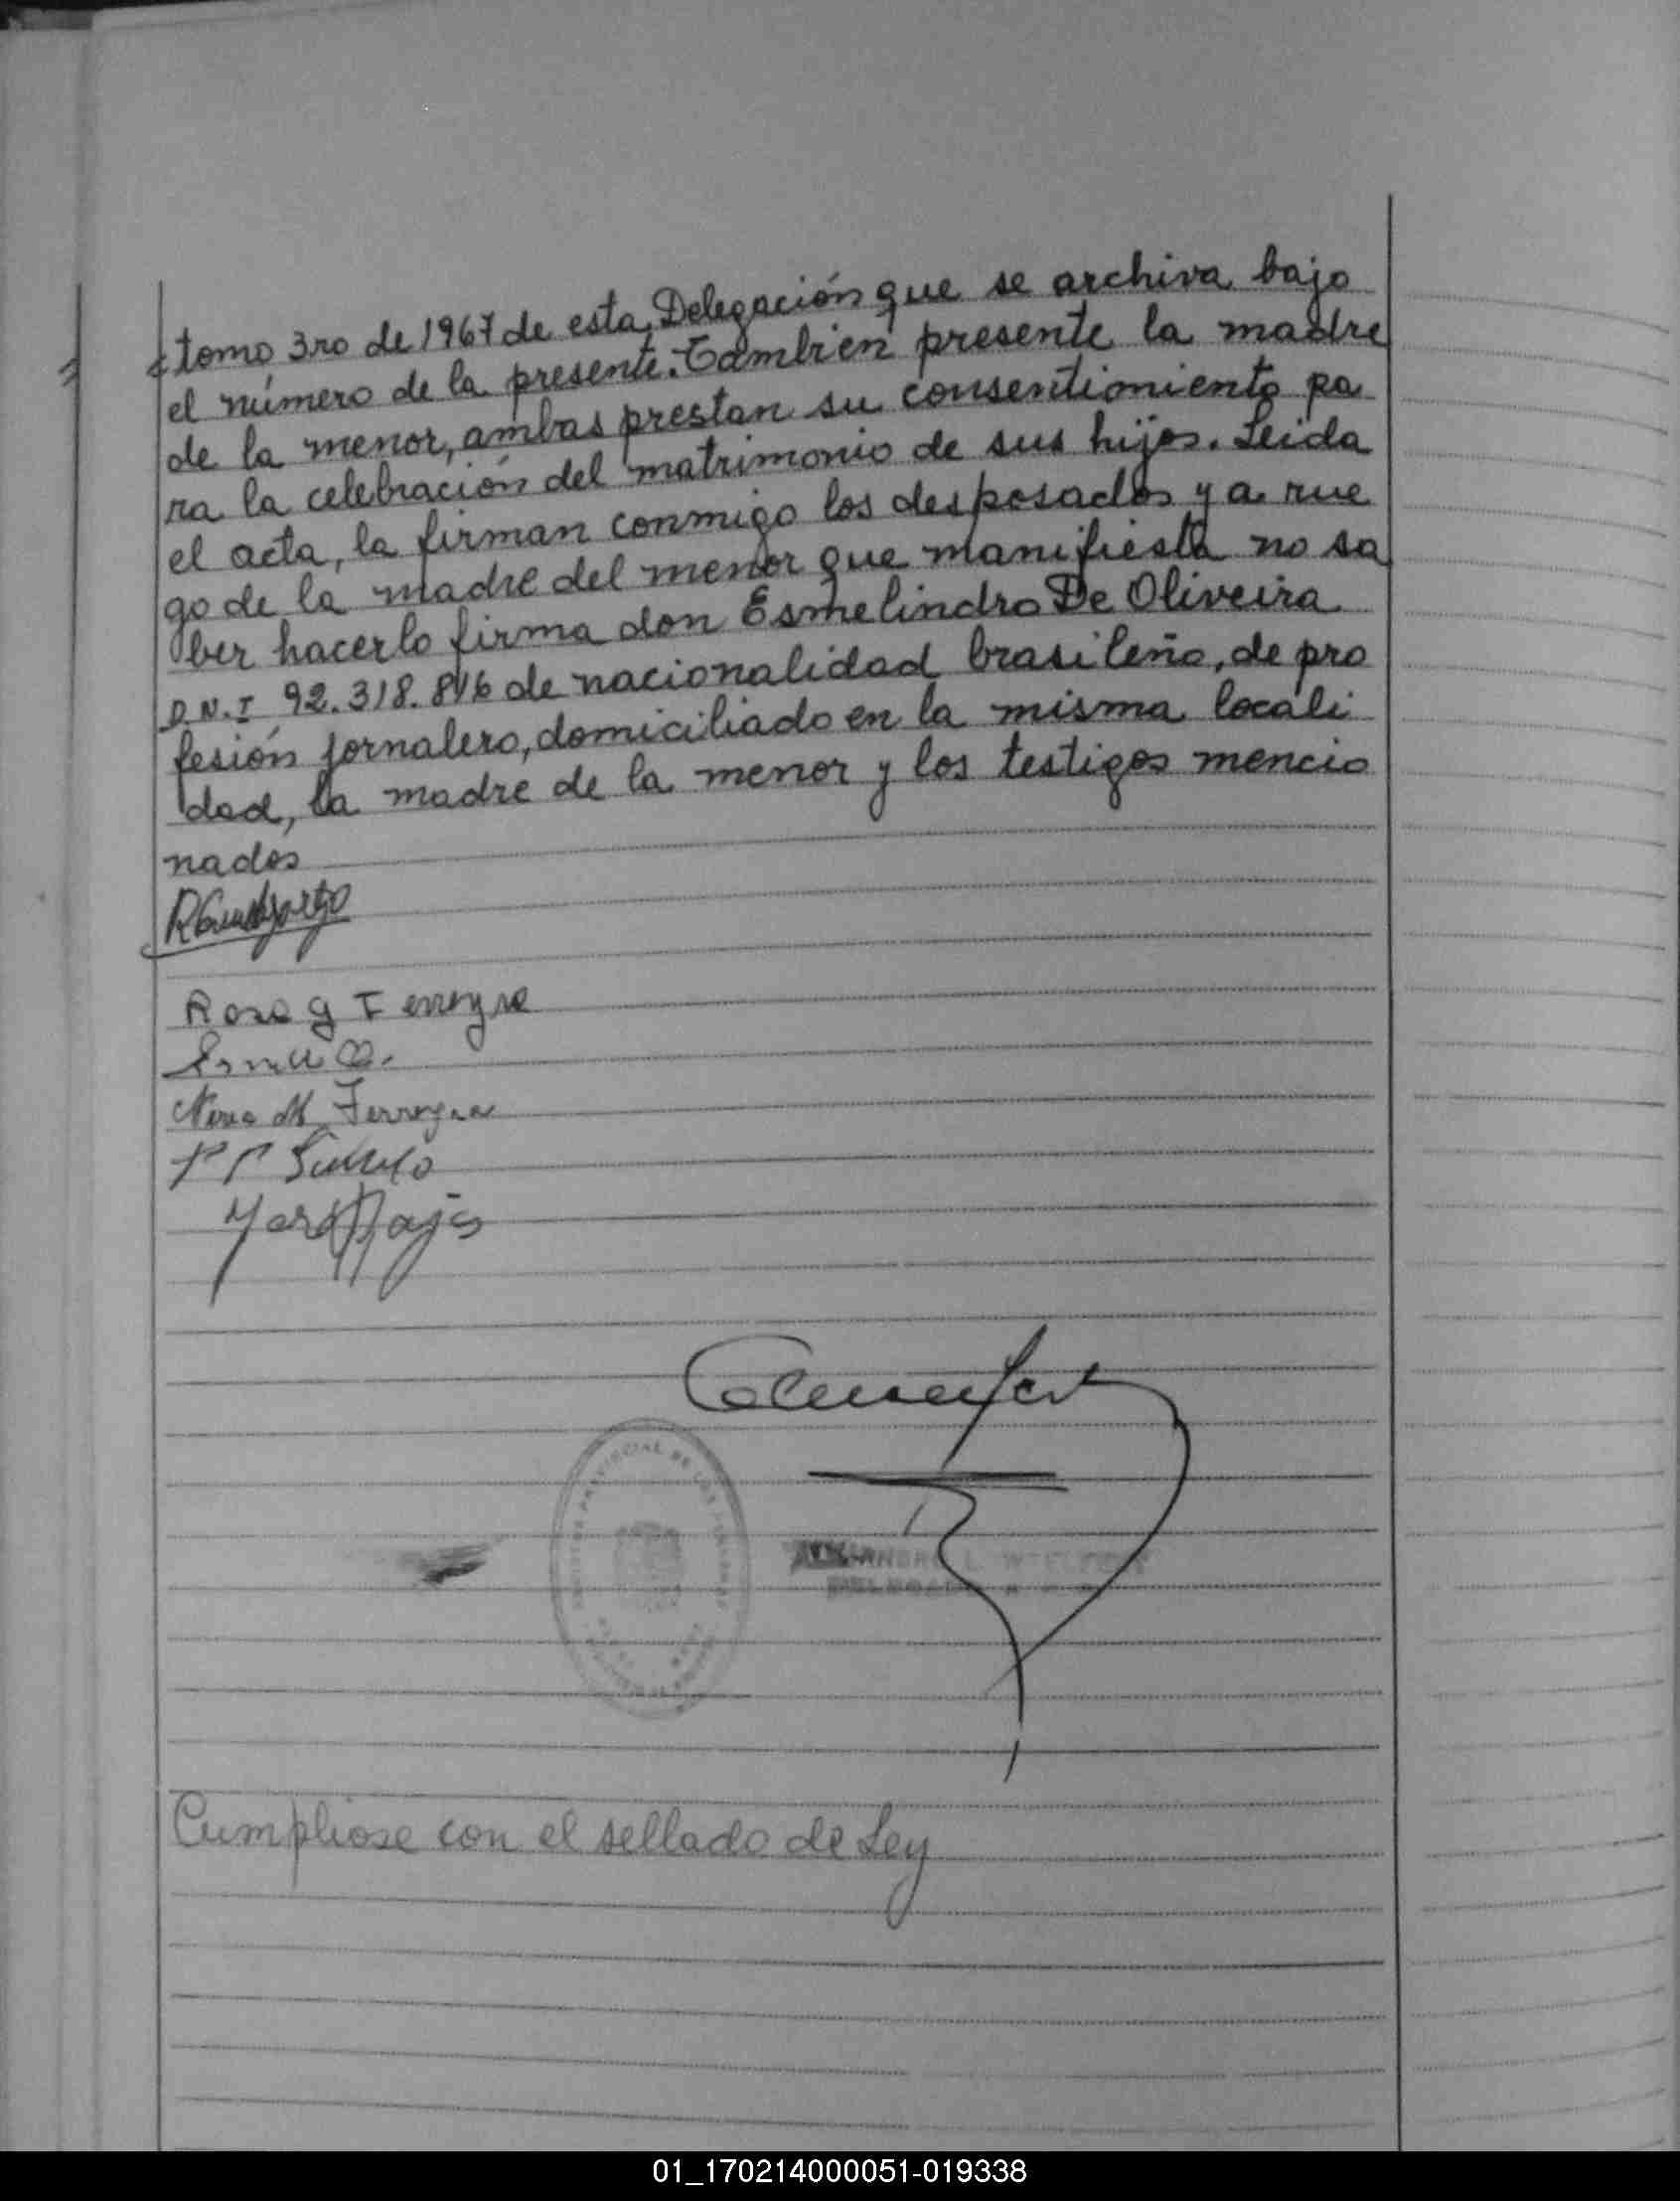 tomo 3ro de 1967 de esta Delegación que se archiva bajo
el número de la presente. También presente la madre
de la menor, ambas prestan su consentimiento pa
ra la celebración del matrimonio de sus hijos. Leida
el acta, la firman conmigo los desposados y a rue
go de la madre del menor que manifiesta no sa
ber hacerlo firma don Esmelindro De Oliveira
D.N.I 92.318.816 de nacionalidad brasileña, de pro
fesión jornalero, domiciliado en la misma locali
dad, la madre de la menor y los testigos mencio
nados
Rosa G Ferreyra
M Ferreyra
PROVINCIAL DE LAS PERSONAS
Cumpliose con el sellado de Ley
01_170214000051-019338